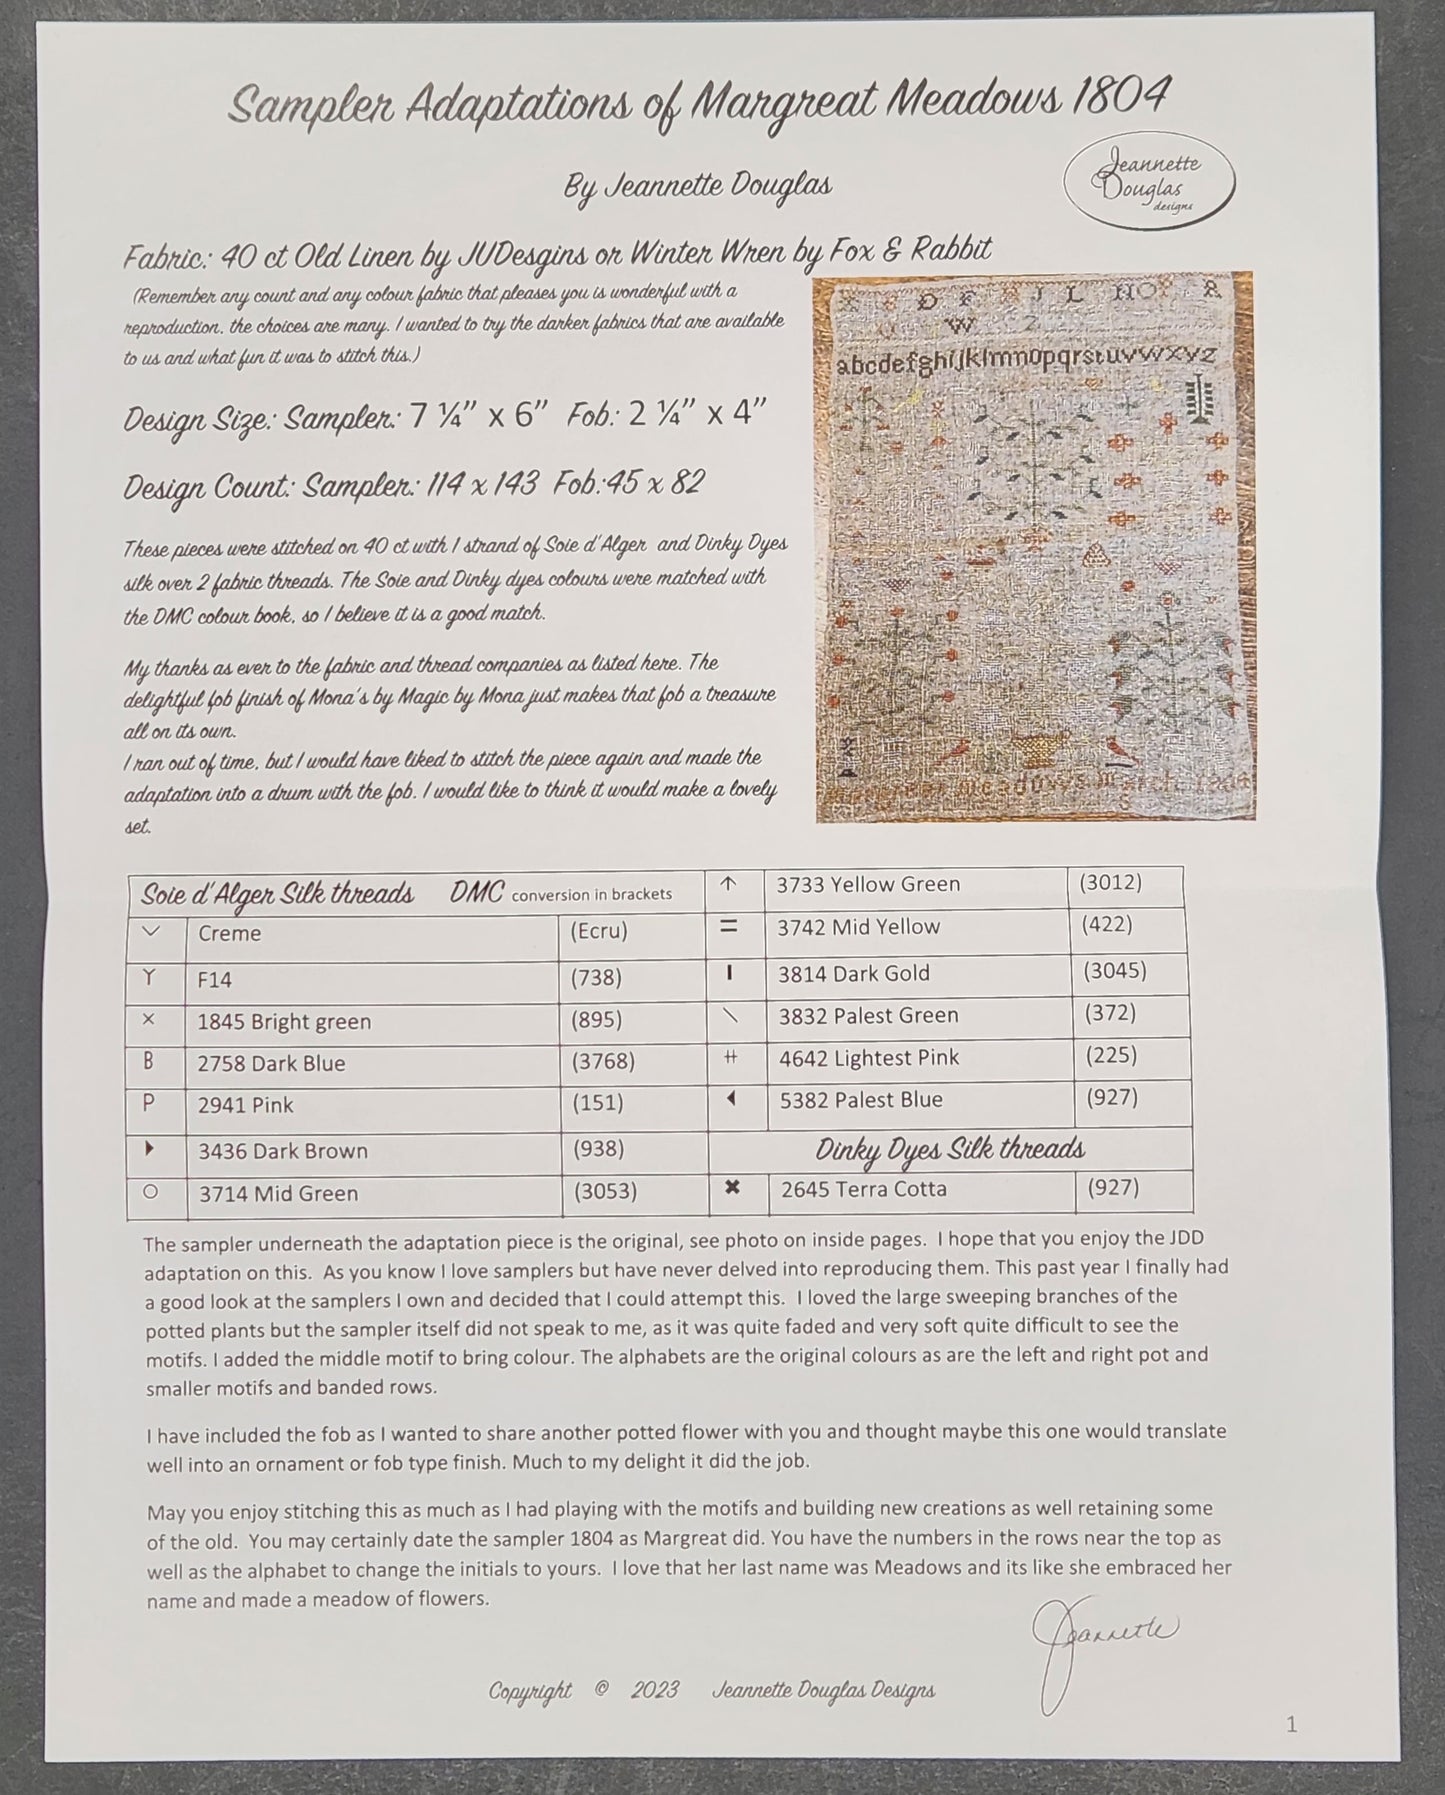 Sampler Adaptations of Margreat Meadows 1804
By Jeannette Douglas
Jeannette
Douglas
designs
Fabric: 40 ct Old Linen by JUDesgins or Winter Wren by Fox & Rabbit
(Remember any count and any colour fabric that pleases you is wonderful with a
reproduction. the choices are many. I wanted to try the darker fabrics that are available
to us and what fun it was to stitch this.)
Design Size: Sampler: 7 ¼” x 6” Fob: 2 ¼” x 4”
Design Count: Sampler: 114 x 143 Fob:45 x 82
These pieces were stitched on 40 ct with 1 strand of Soie d'Alger and Dinky Dyes
silk over 2 fabric threads. The Soie and Dinky dyes colours were matched with
the DMC colour book, so I believe it is a good match.
My thanks as ever to the fabric and thread companies as listed here. The
delightful fob finish of Mona's by Magic by Mona just makes that fob a treasure
all on its own.
I ran out of time, but I would have liked to stitch the piece again and made the
adaptation into a drum with the fob. I would like to think it would make a lovely
set.
abcdefghijklmnopqrstuvwxyz
meadows March 1804
Soie d'Alger Silk threads DMC conversion in brackets
Creme (Ecru)
Y F14 (738)
× 1845 Bright green (895)
B 2758 Dark Blue (3768)
P 2941 Pink (151)
3436 Dark Brown (938)
○ 3714 Mid Green (3053)
↑ 3733 Yellow Green (3012)
= 3742 Mid Yellow (422)
I 3814 Dark Gold (3045)
\ 3832 Palest Green (372)
# 4642 Lightest Pink (225)
5382 Palest Blue (927)
Dinky Dyes Silk threads
✖ 2645 Terra Cotta (927)
The sampler underneath the adaptation piece is the original, see photo on inside pages. I hope that you enjoy the JDD
adaptation on this. As you know I love samplers but have never delved into reproducing them. This past year I finally had
a good look at the samplers I own and decided that I could attempt this. I loved the large sweeping branches of the
potted plants but the sampler itself did not speak to me, as it was quite faded and very soft quite difficult to see the
motifs. I added the middle motif to bring colour. The alphabets are the original colours as are the left and right pot and
smaller motifs and banded rows.
I have included the fob as I wanted to share another potted flower with you and thought maybe this one would translate
well into an ornament or fob type finish. Much to my delight it did the job.
May you enjoy stitching this as much as I had playing with the motifs and building new creations as well retaining some
of the old. You may certainly date the sampler 1804 as Margreat did. You have the numbers in the rows near the top as
well as the alphabet to change the initials to yours. I love that her last name was Meadows and its like she embraced her
name and made a meadow of flowers.
Jeannette
Copyright © 2023 Jeannette Douglas Designs
1